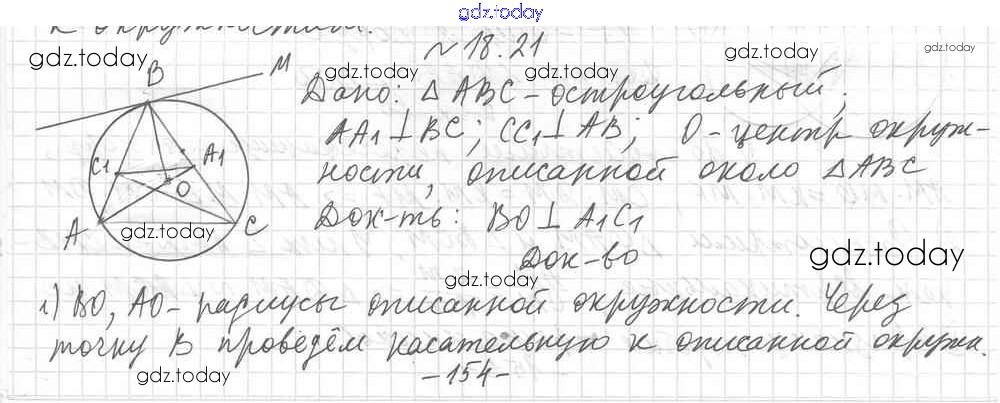 gdz.today
к окружности.
№18.21
gdz.today
gdz.today
gdz.today
gdz.today
B
M
C1
A1
O
A
C
Дано: △ABC - остроугольный;
AA1⊥BC; CC1⊥AB; O - центр окруж-
ности, описанной около △ABC
Док-ть: BO⊥A1C1
gdz.today
gdz.today
Док-во
gdz.today
1) BO, AO - радиусы описанной окружности. Через
точку B проведём касательную к описанной окружн.
gdz.today
-154-